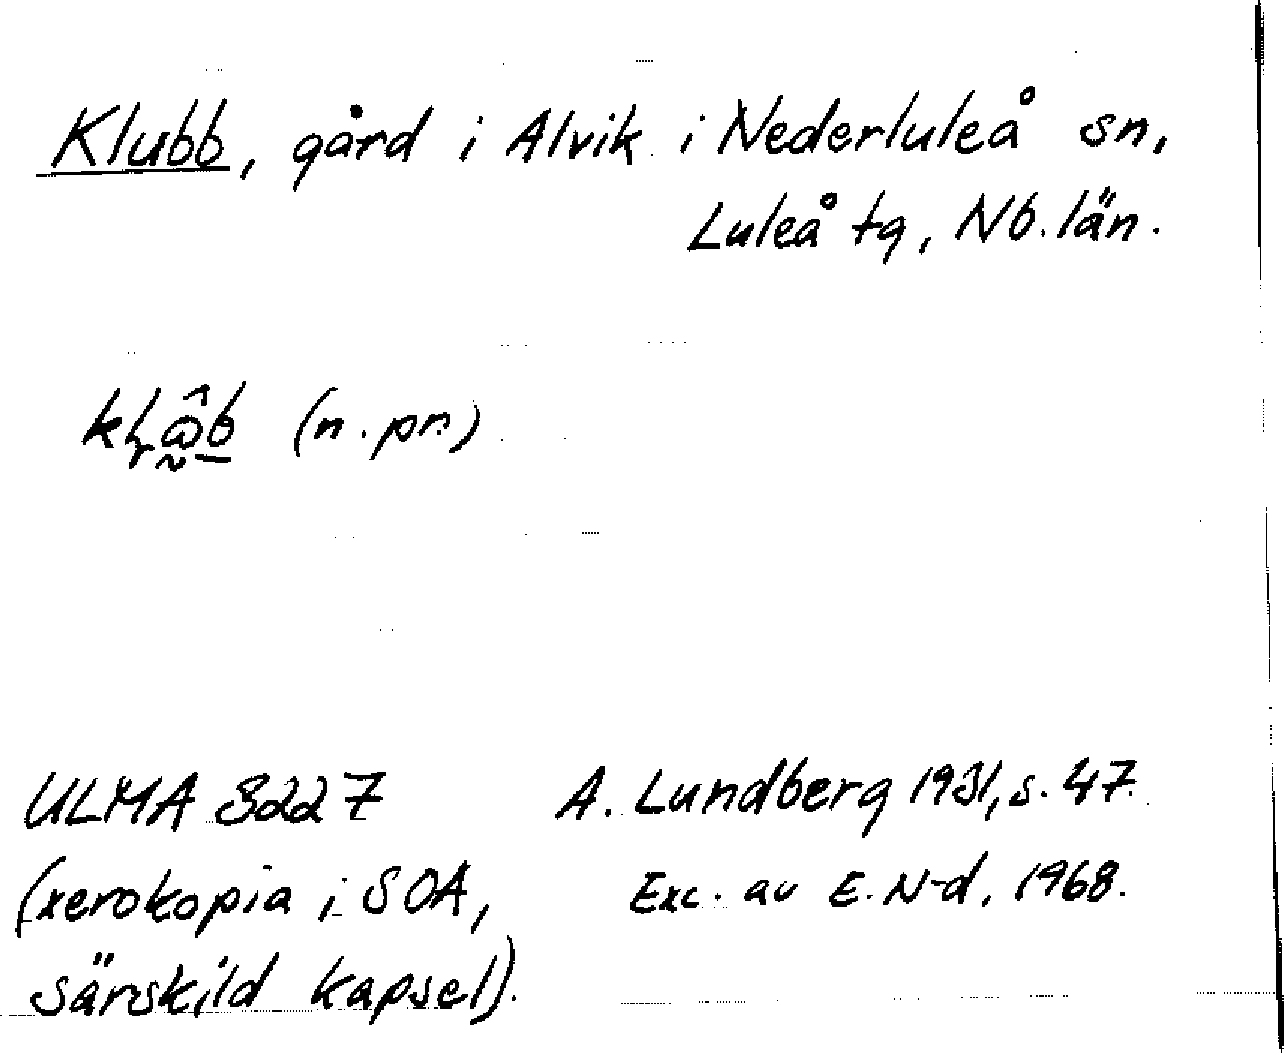 Klubb, gård i Alvik i Nederluleå sn,
Luleå tg, Nb. län.
(n. pr.)
ULMA 3227
A. Lundberg 1931, s. 47.
(xerokopia i SOA,
Exc. av E. N-d, 1968.
särskild kapsel).